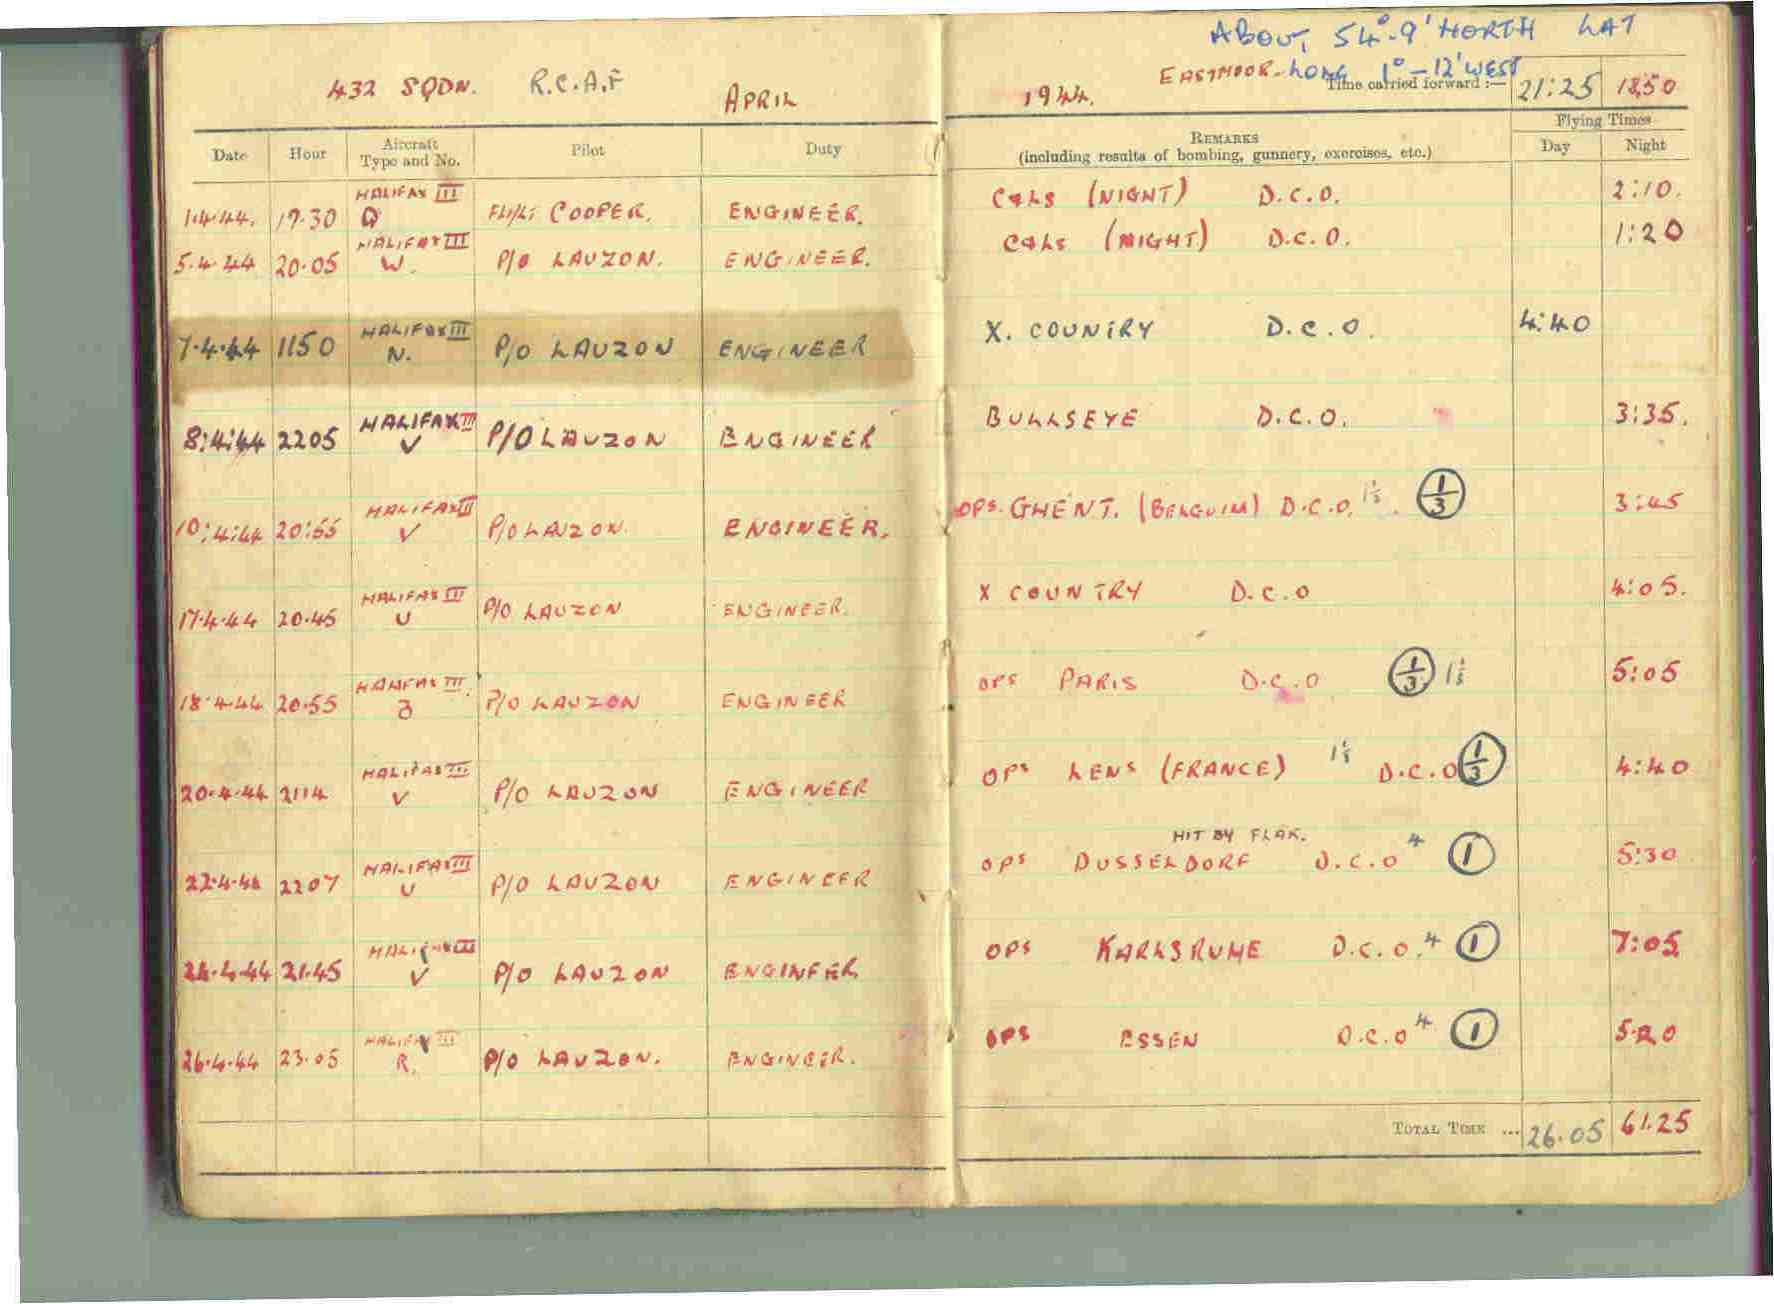 ABOUT 54°-9' NORTH LAT
432 SQDN. R.C.A.F APRIL 1944. EASTMOOR - LONG 1°-12' WEST
Time carried forward :— 21:25 18.50
Date Hour Aircraft Type and No. Pilot Duty REMARKS (including results of bombing, gunnery, exercises, etc.) Flying Times Day Night
HALIFAX III
1.4.44. 19.30 Q FLT/LT COOPER. ENGINEER. C&LS (NIGHT) D.C.O. 2:10.
HALIFAX III
5.4.44 20.05 W. P/O LAUZON. ENGINEER. C&LS (NIGHT) D.C.O. 1:20
HALIFAX III
7.4.44 1150 N. P/O LAUZON ENGINEER X. COUNTRY D.C.O. 4:40
HALIFAX III
8:4:44 2205 V P/O LAUZON ENGINEER BULLSEYE D.C.O. 3:35.
HALIFAX III
10:4:44 20:55 V P/O LAUZON. ENGINEER. OPS. GHENT. (BELGUIM) D.C.O. 1/3 3:45
HALIFAX III
17.4.44 20.45 U P/O LAUZON ENGINEER. X COUNTRY D.C.O 4:05.
HALIFAX III.
18.4.44 20.55 P/O LAUZON ENGINEER OPS PARIS D.C.O 1/3 5:05
HALIFAX III
20.4.44 2114 V P/O LAUZON ENGINEER OPS LENS (FRANCE) D.C.O 1/3 4:40
HALIFAX III HIT BY FLAK.
22.4.44 2207 U P/O LAUZON ENGINEER OPS DUSSELDORF D.C.O 4 1 5:30
HALIFAX III
24.4.44 21.45 V P/O LAUZON ENGINEER OPS KARLSRUHE D.C.O. 4 1 7:05
HALIFAX III
26.4.44 23.05 R. P/O LAUZON. ENGINEER. OPS ESSEN D.C.O 4 1 5.20
TOTAL TIME ... 26.05 61.25